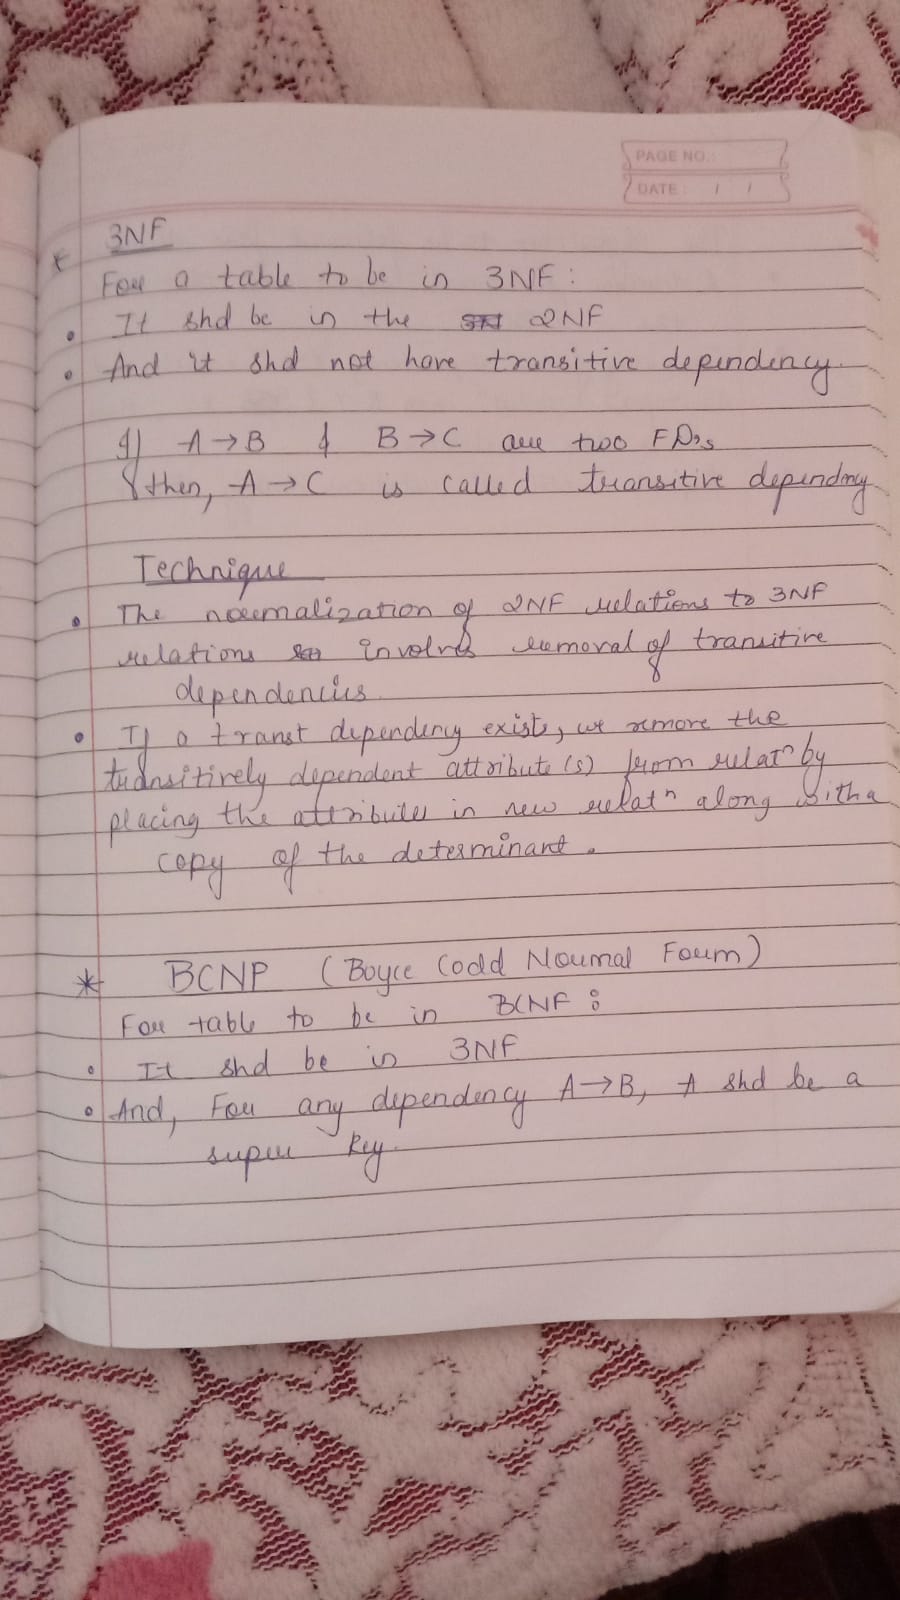 PAGE NO.:
DATE: / /
* 3NF
For a table to be in 3NF:
• It shd be in the 2NF
• And it shd not have transitive dependency.
If A → B & B → C are two FD's
then, A → C is called transitive dependncy
Technique
• The normalization of 2NF relations to 3NF
relations involves removal of transitive
dependencies.
• If a transt dependency exists, we remove the
transitively dependent attribute(s) from relatn by
placing the attributes in new relatn along with a
copy of the determinant.
* BCNF (Boyce Codd Normal Form)
For table to be in BCNF:
• It shd be in 3NF
• And, For any dependency A → B, A shd be a
super key.